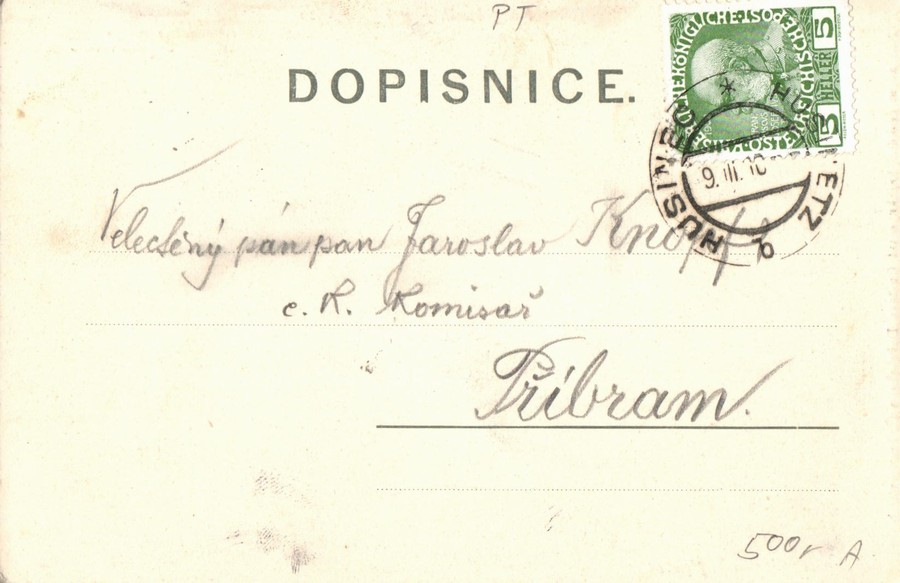 PT
DOPISNICE.
KAISERLICHE KÖNIGLICHE OESTERREICHISCHE POST
5 HELLER 5
HUSINEC HUSINETZ
9. III. 10
Velectěný pán pan Jaroslav Knopf
c. K. Komisař
Příbram.
500r A